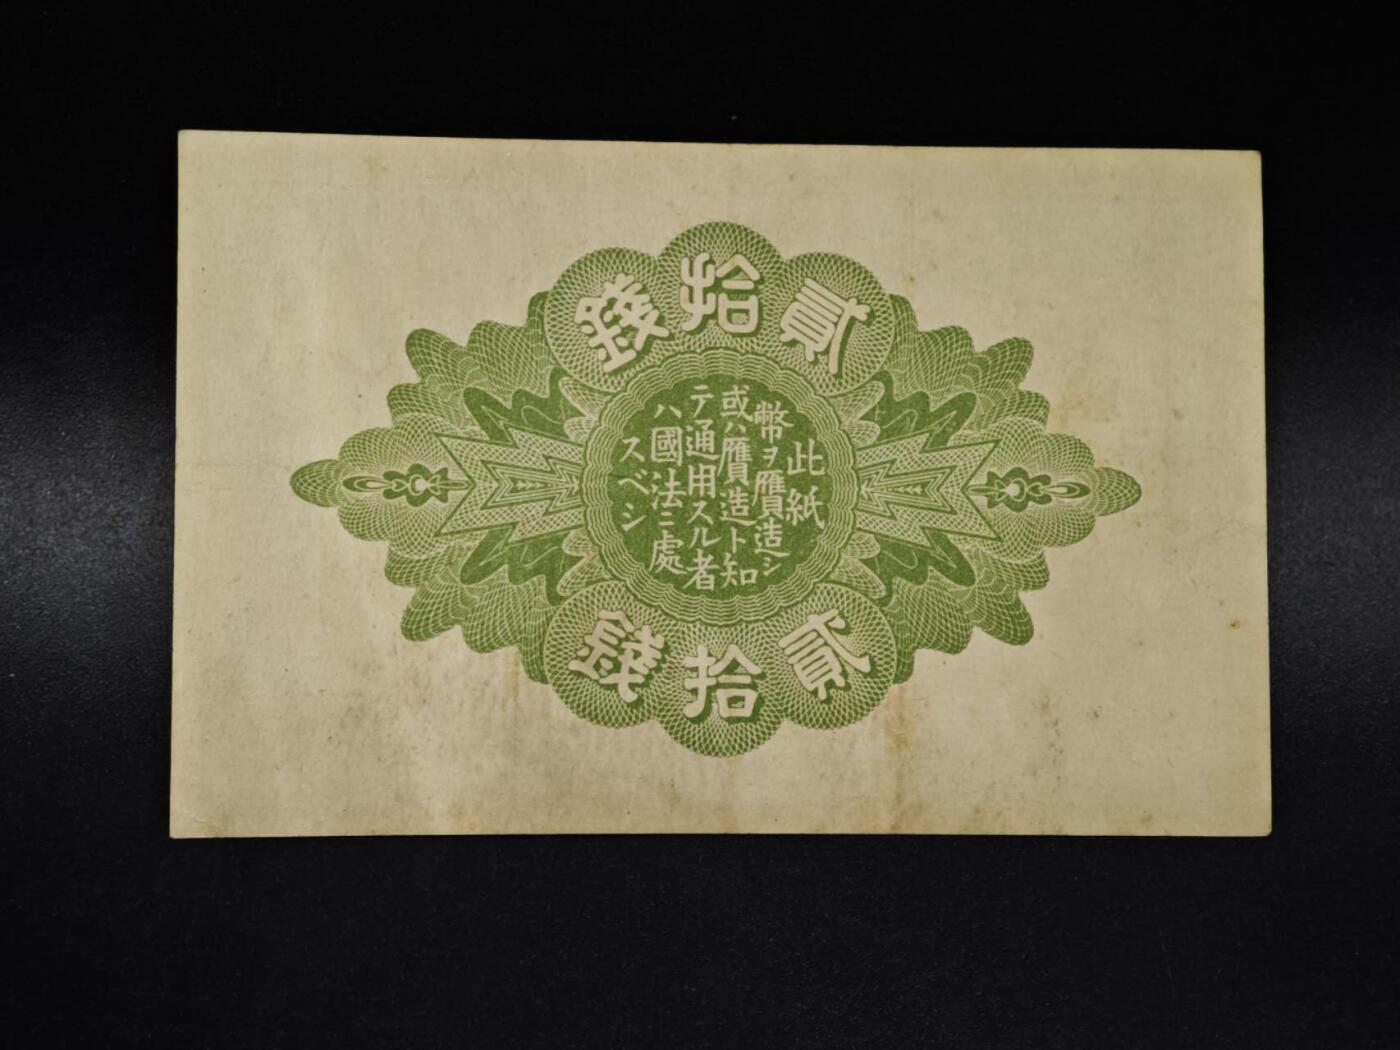 貳拾錢
此紙
幣ヲ贋造シ
或ハ贋造ト知
テ通用スル者
ハ國法ニ處
スベシ
貳拾錢